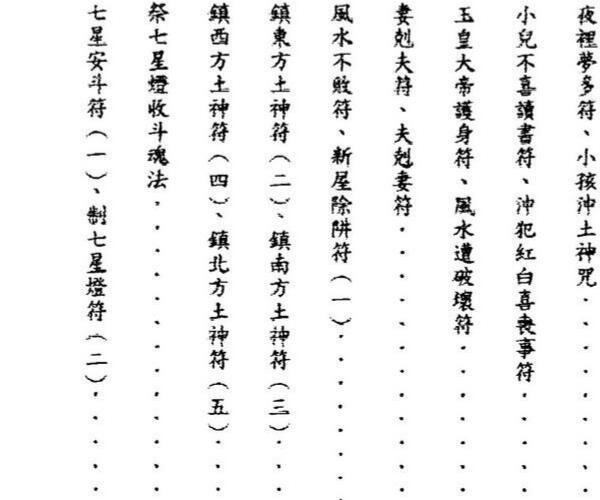 夜裡夢多符、小孩沖土神咒·········
小兒不喜讀書符、沖犯紅白喜喪事符·····
玉皇大帝護身符、風水遭破壞符·······
妻剋夫符、夫剋妻符············
風水不敗符、新屋除阱符（一）·······
鎮東方土神符（二）、鎮南方土神符（三）···
鎮西方土神符（四）、鎮北方土神符（五）···
祭七星燈收斗魂法·············
七星安斗符（一）、制七星燈符（二）·····